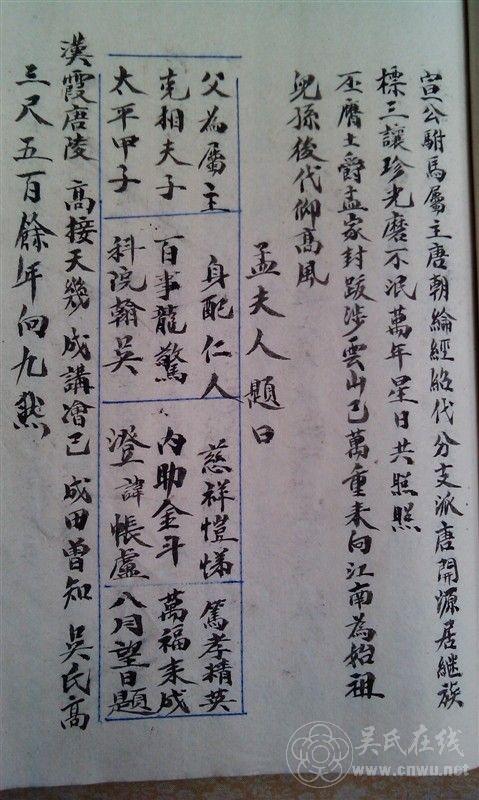 宣公駙馬屬主唐朝綸經紹代分支派唐開源居繼族
標三讓珍光磨不泯萬年星日共照照
丕膺土爵孟家封跋涉雲山已萬重来向江南為始祖
兒孫後代仰高風
孟夫人題口
父為屬主 身配仁人 慈祥愷悌 篤孝精英
克相夫子 百事龍驚 內助金斗 萬福来成
太平甲子 科院翰吳 澄諱帳盧 八月望日題
漢霞唐陵 高接天幾 成講滄已 成田曾知 吳氏高
三尺五百餘年向九㸃
吴氏在线
www.cnwu.net